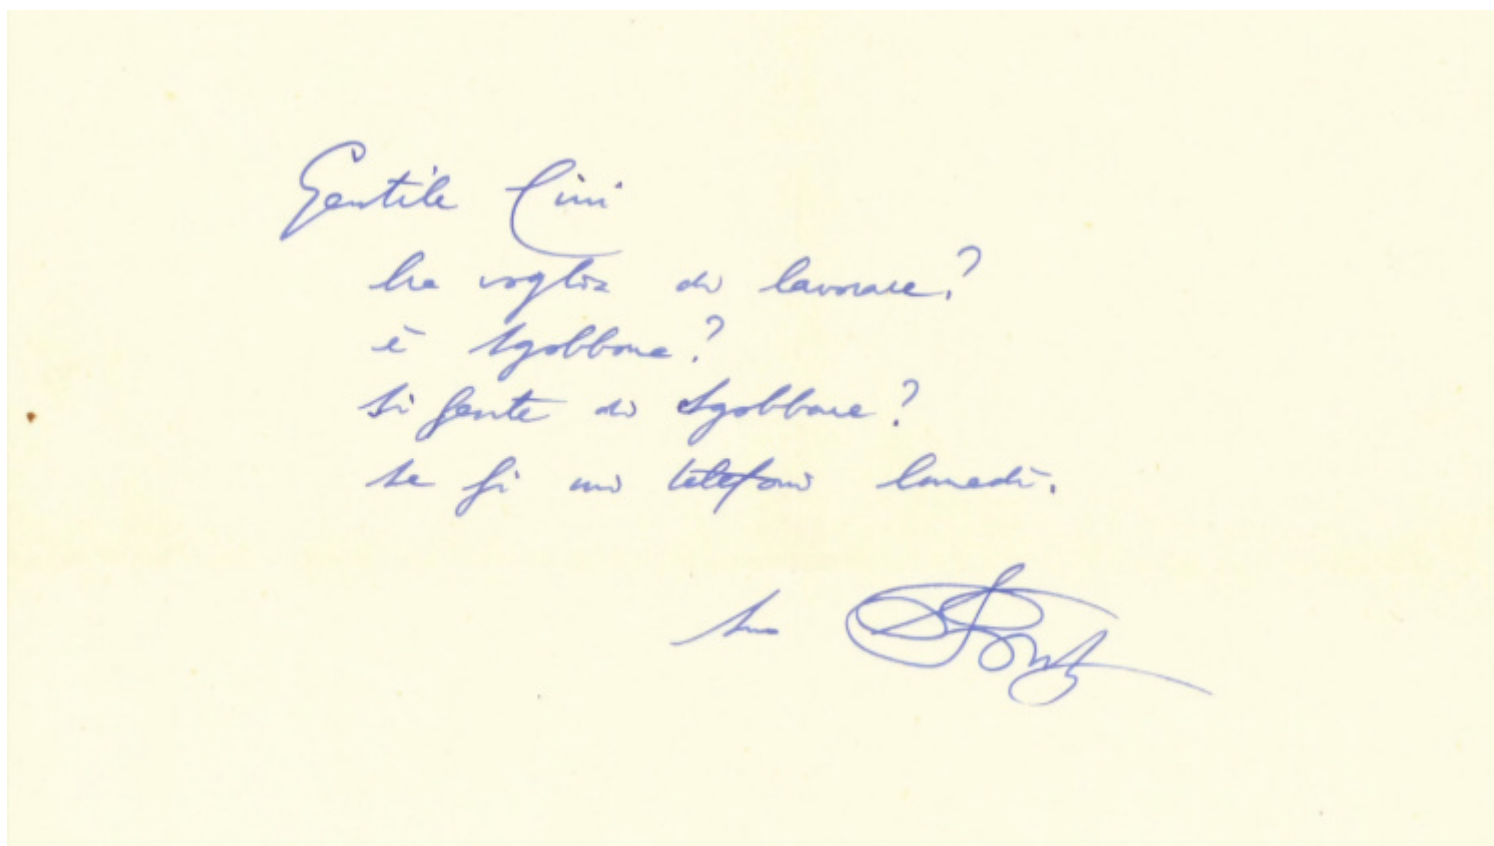 Gentile Cini
ha voglia di lavorare?
è sgobbone?
si sente di sgobbare?
se sì mi telefoni lunedì.
suo